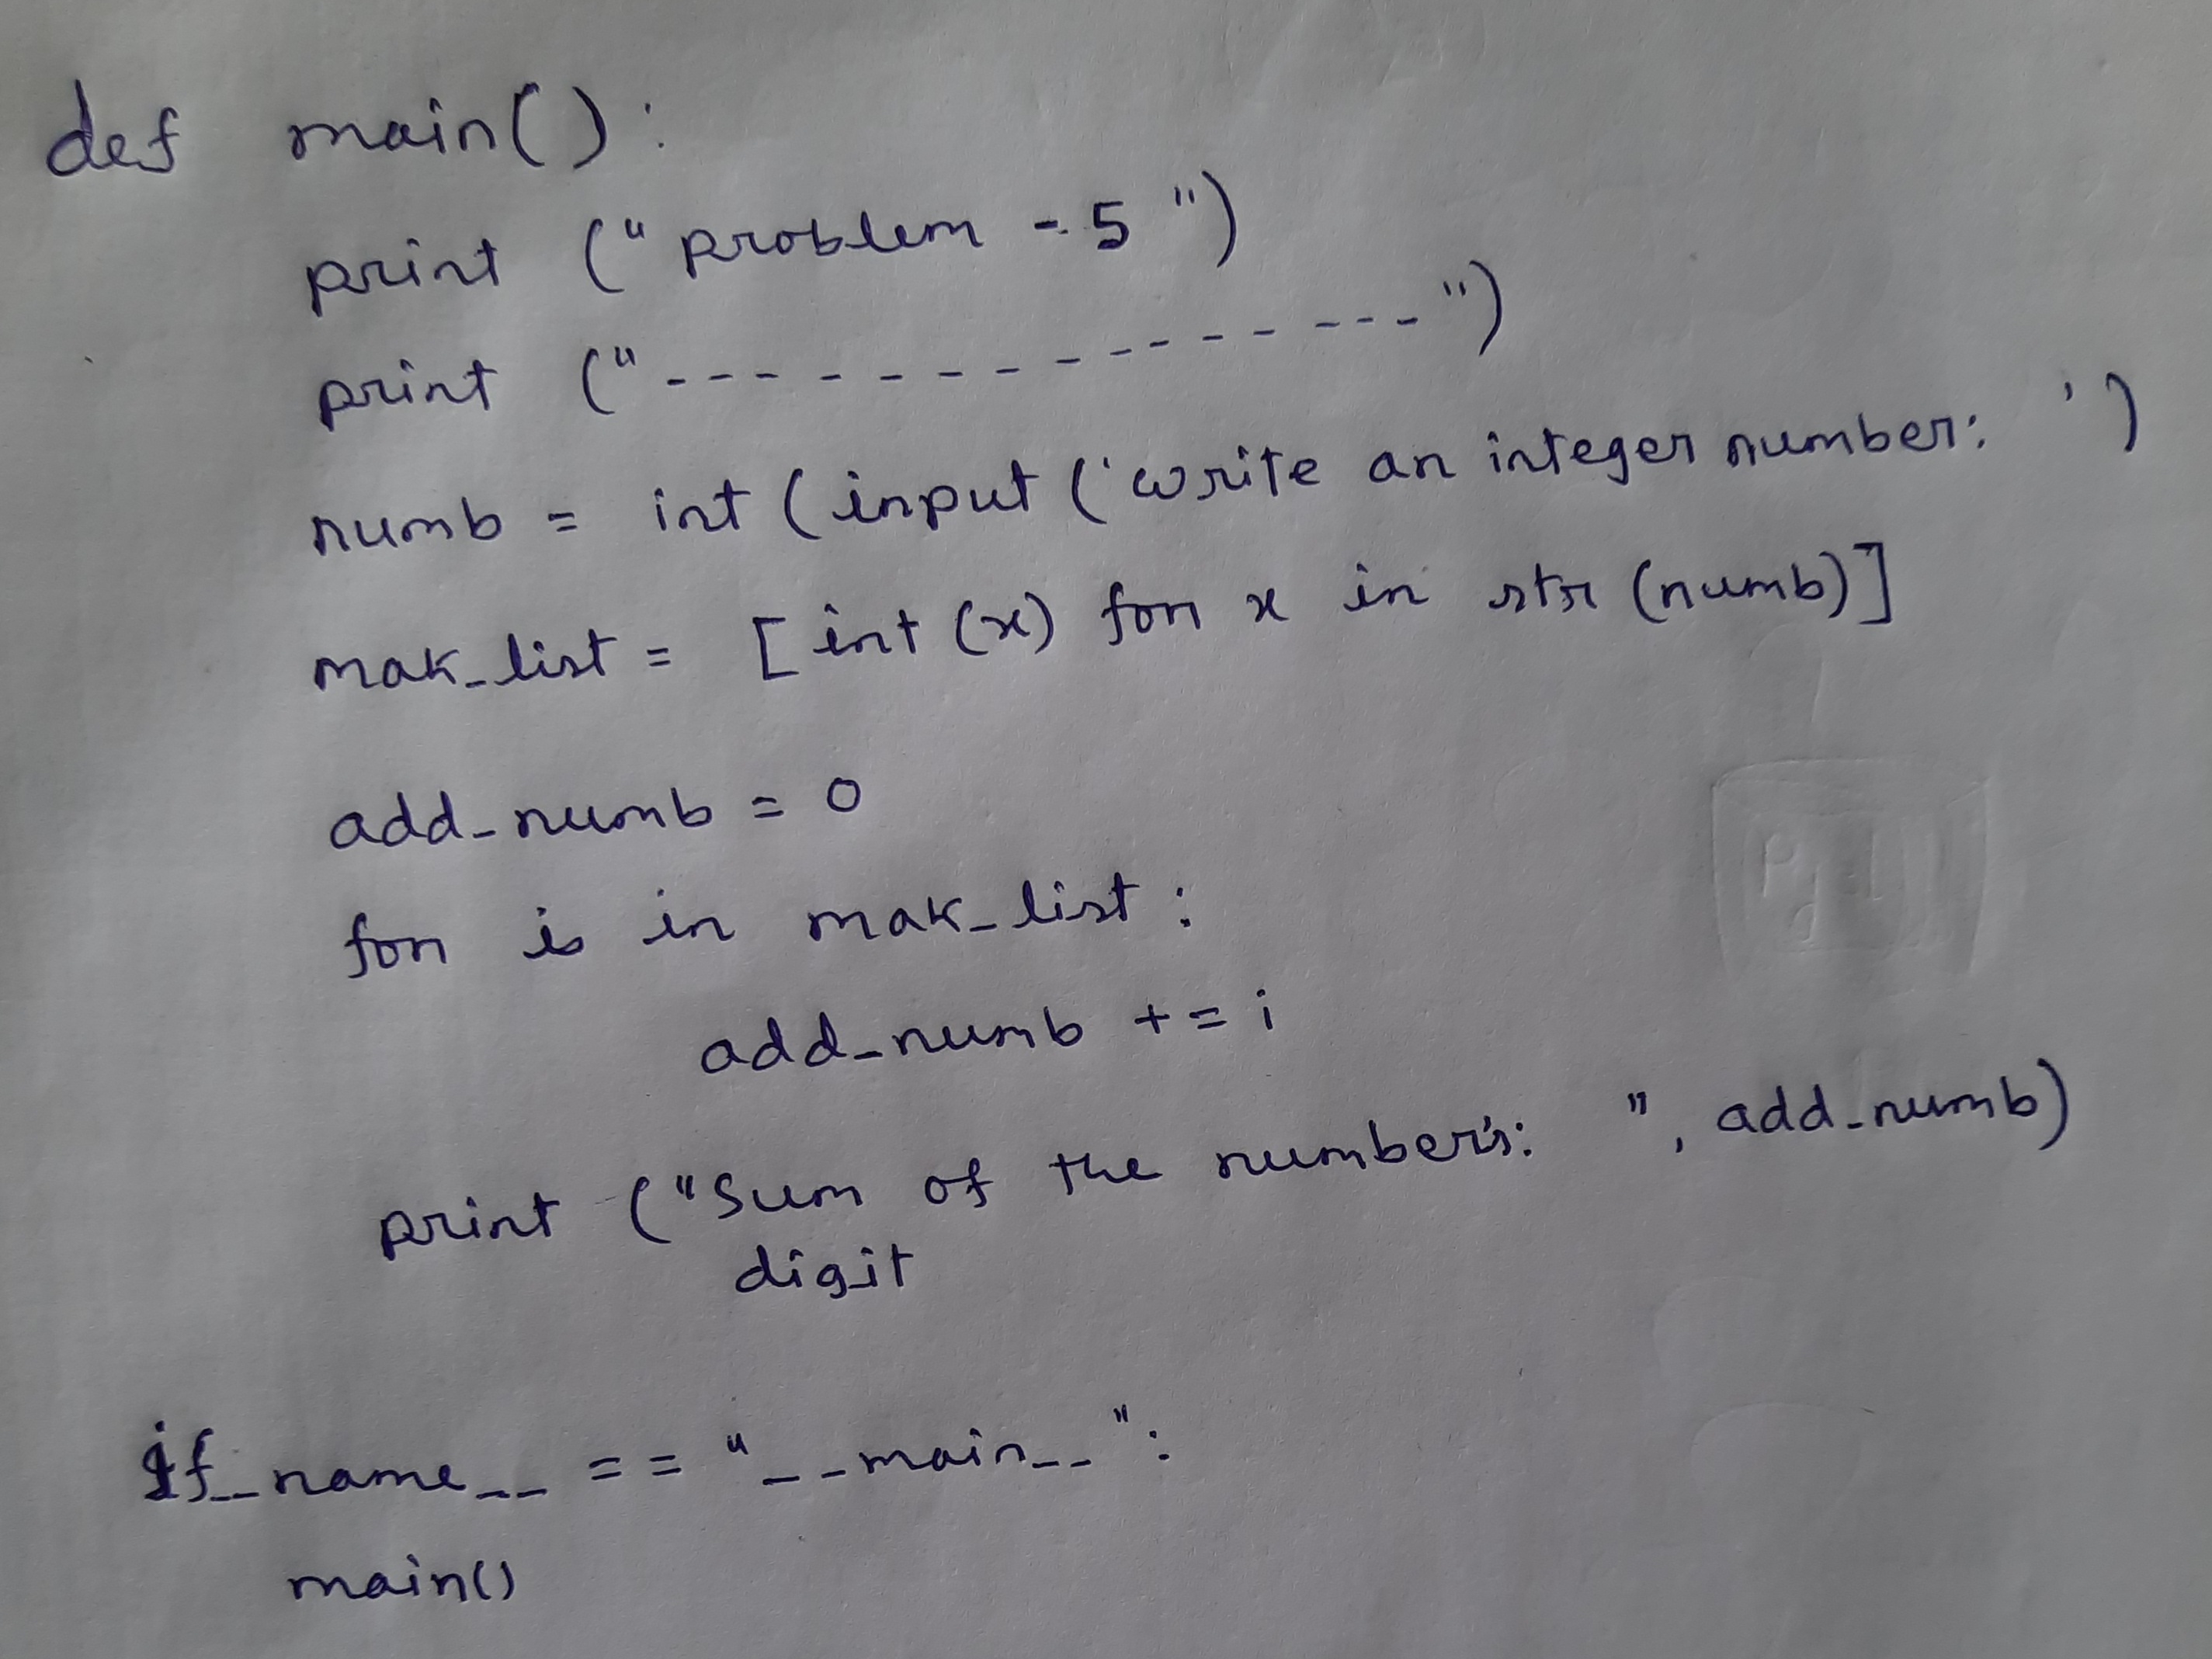 def main():
print ("problem - 5 ")
print ("----------------")
numb = int (input ('write an integer number: ')
mak_list = [int (x) for x in str (numb)]
add_numb = 0
for i in mak_list :
add_numb += i
print ("Sum of the number's: ", add_numb)
digit
if __name__ == "__main__":
main()